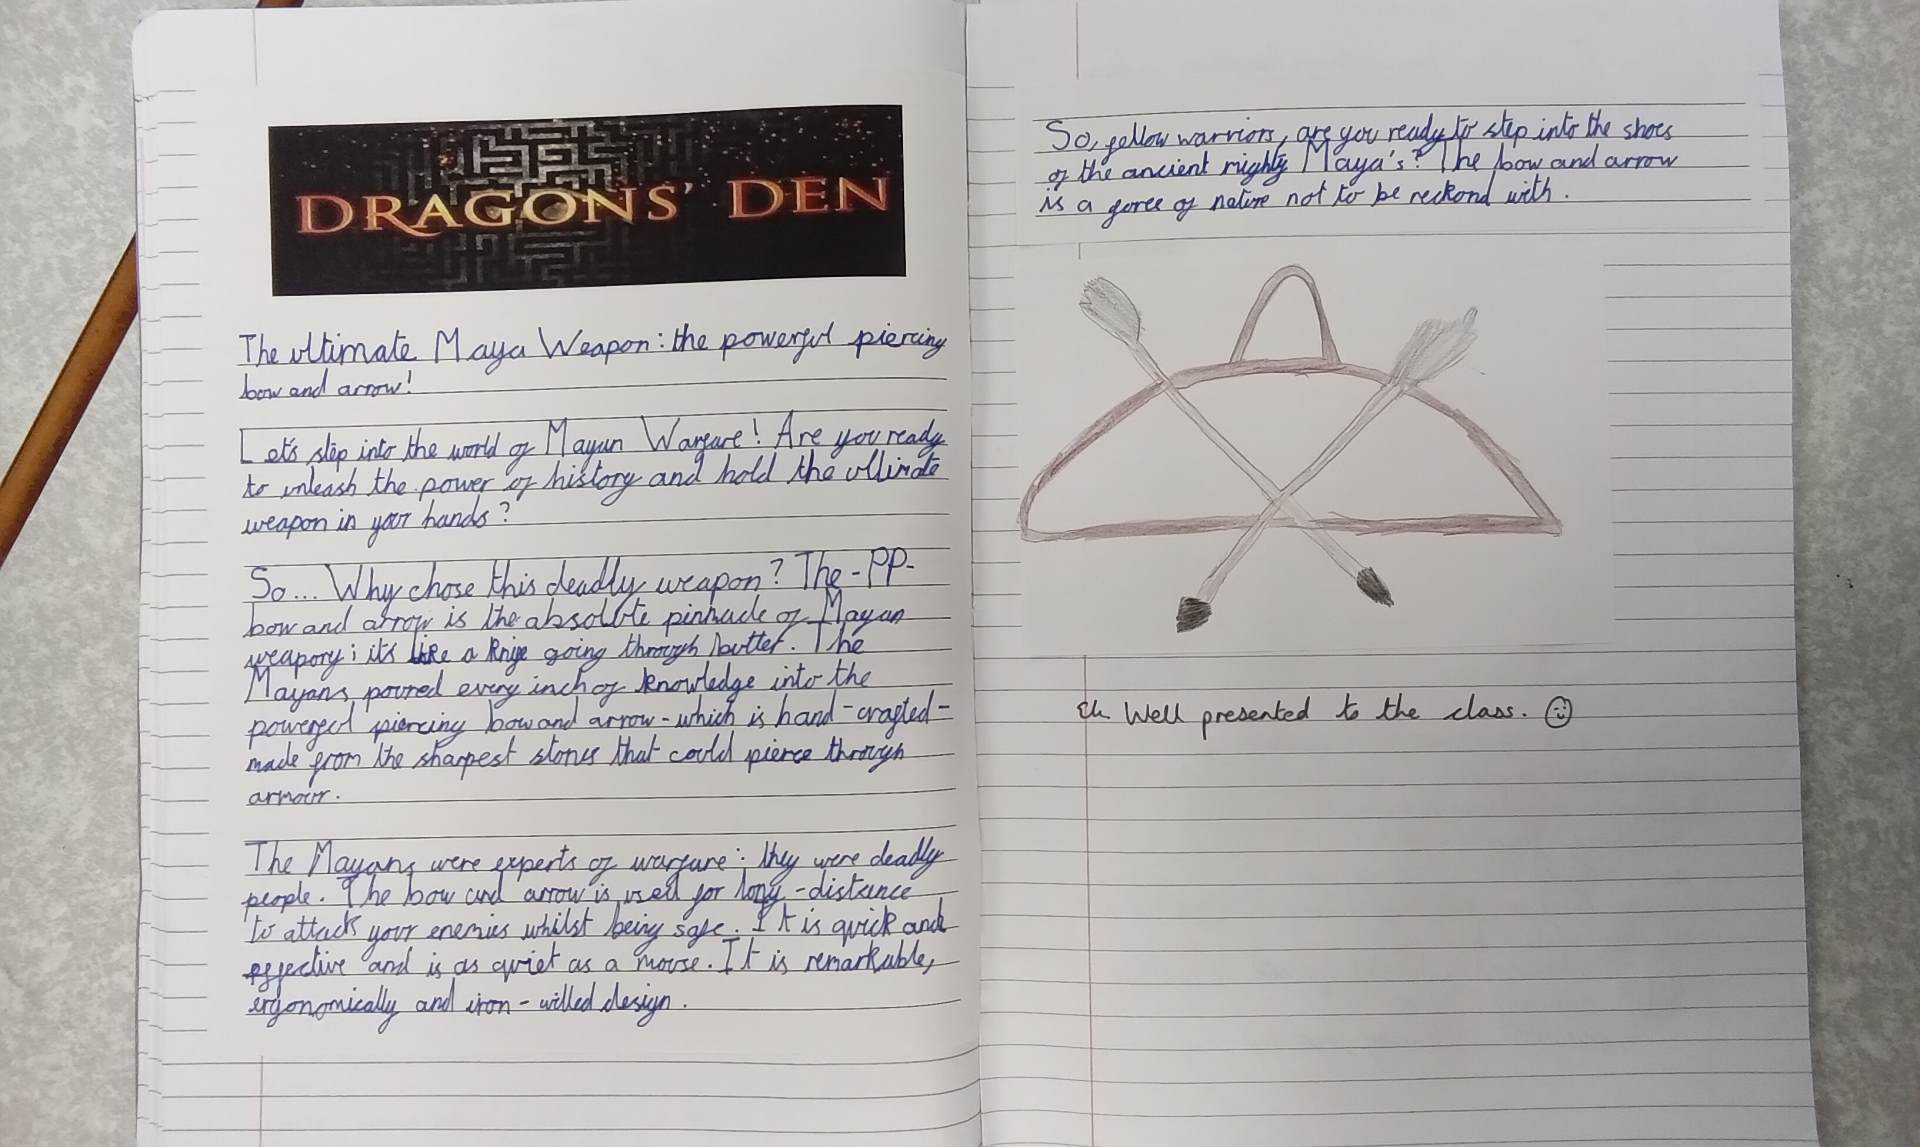 DRAGONS' DEN
The ultimate Maya Weapon: the powerful piercing
bow and arrow!
Let's step into the world of Mayan Warfare! Are you ready
to unleash the power of history and hold the ultimate
weapon in your hands?
So... Why chose this deadly weapon? The - PP-
bow and arrow is the absolute pinnacle of Mayan
weapory; it's like a knife going through butter. The
Mayans poured every inch of knowledge into the
powerful piercing bow and arrow - which is hand-crafted-
made from the sharpest stones that could pierce through
armour.
The Mayans were experts of warfare: they were deadly
people. The bow and arrow is used for long-distance
to attack your enemies whilst being safe. It is quick and
effective and is as quiet as a mouse. It is remarkable,
ergonomically and iron-willed design.
So, fellow warriors, are you ready to step into the shoes
of the ancient mighty Maya's? The bow and arrow
is a force of nature not to be reckond with.
Well presented to the class.